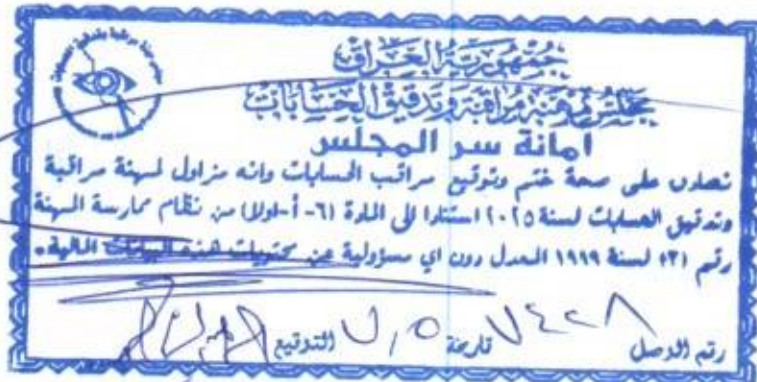 جمهورية العراق
مجلس مهنة مراقبة وتدقيق الحسابات
امانة سر المجلس
نصادق على صحة ختم وتوقيع مراقب الحسابات وانه مزاول لمهنة مراقبة
وتدقيق الحسابات لسنة ٢٠٢٥ استنادا الى المادة (٦-أ-اولا) من نظام ممارسة المهنة
رقم (٣) لسنة ١٩٩٩ المعدل دون اي مسؤولية عن محتويات هذه البيانات المالية.
رقم الوصل ٧٤٢٢٨ تاريخه التوقيع